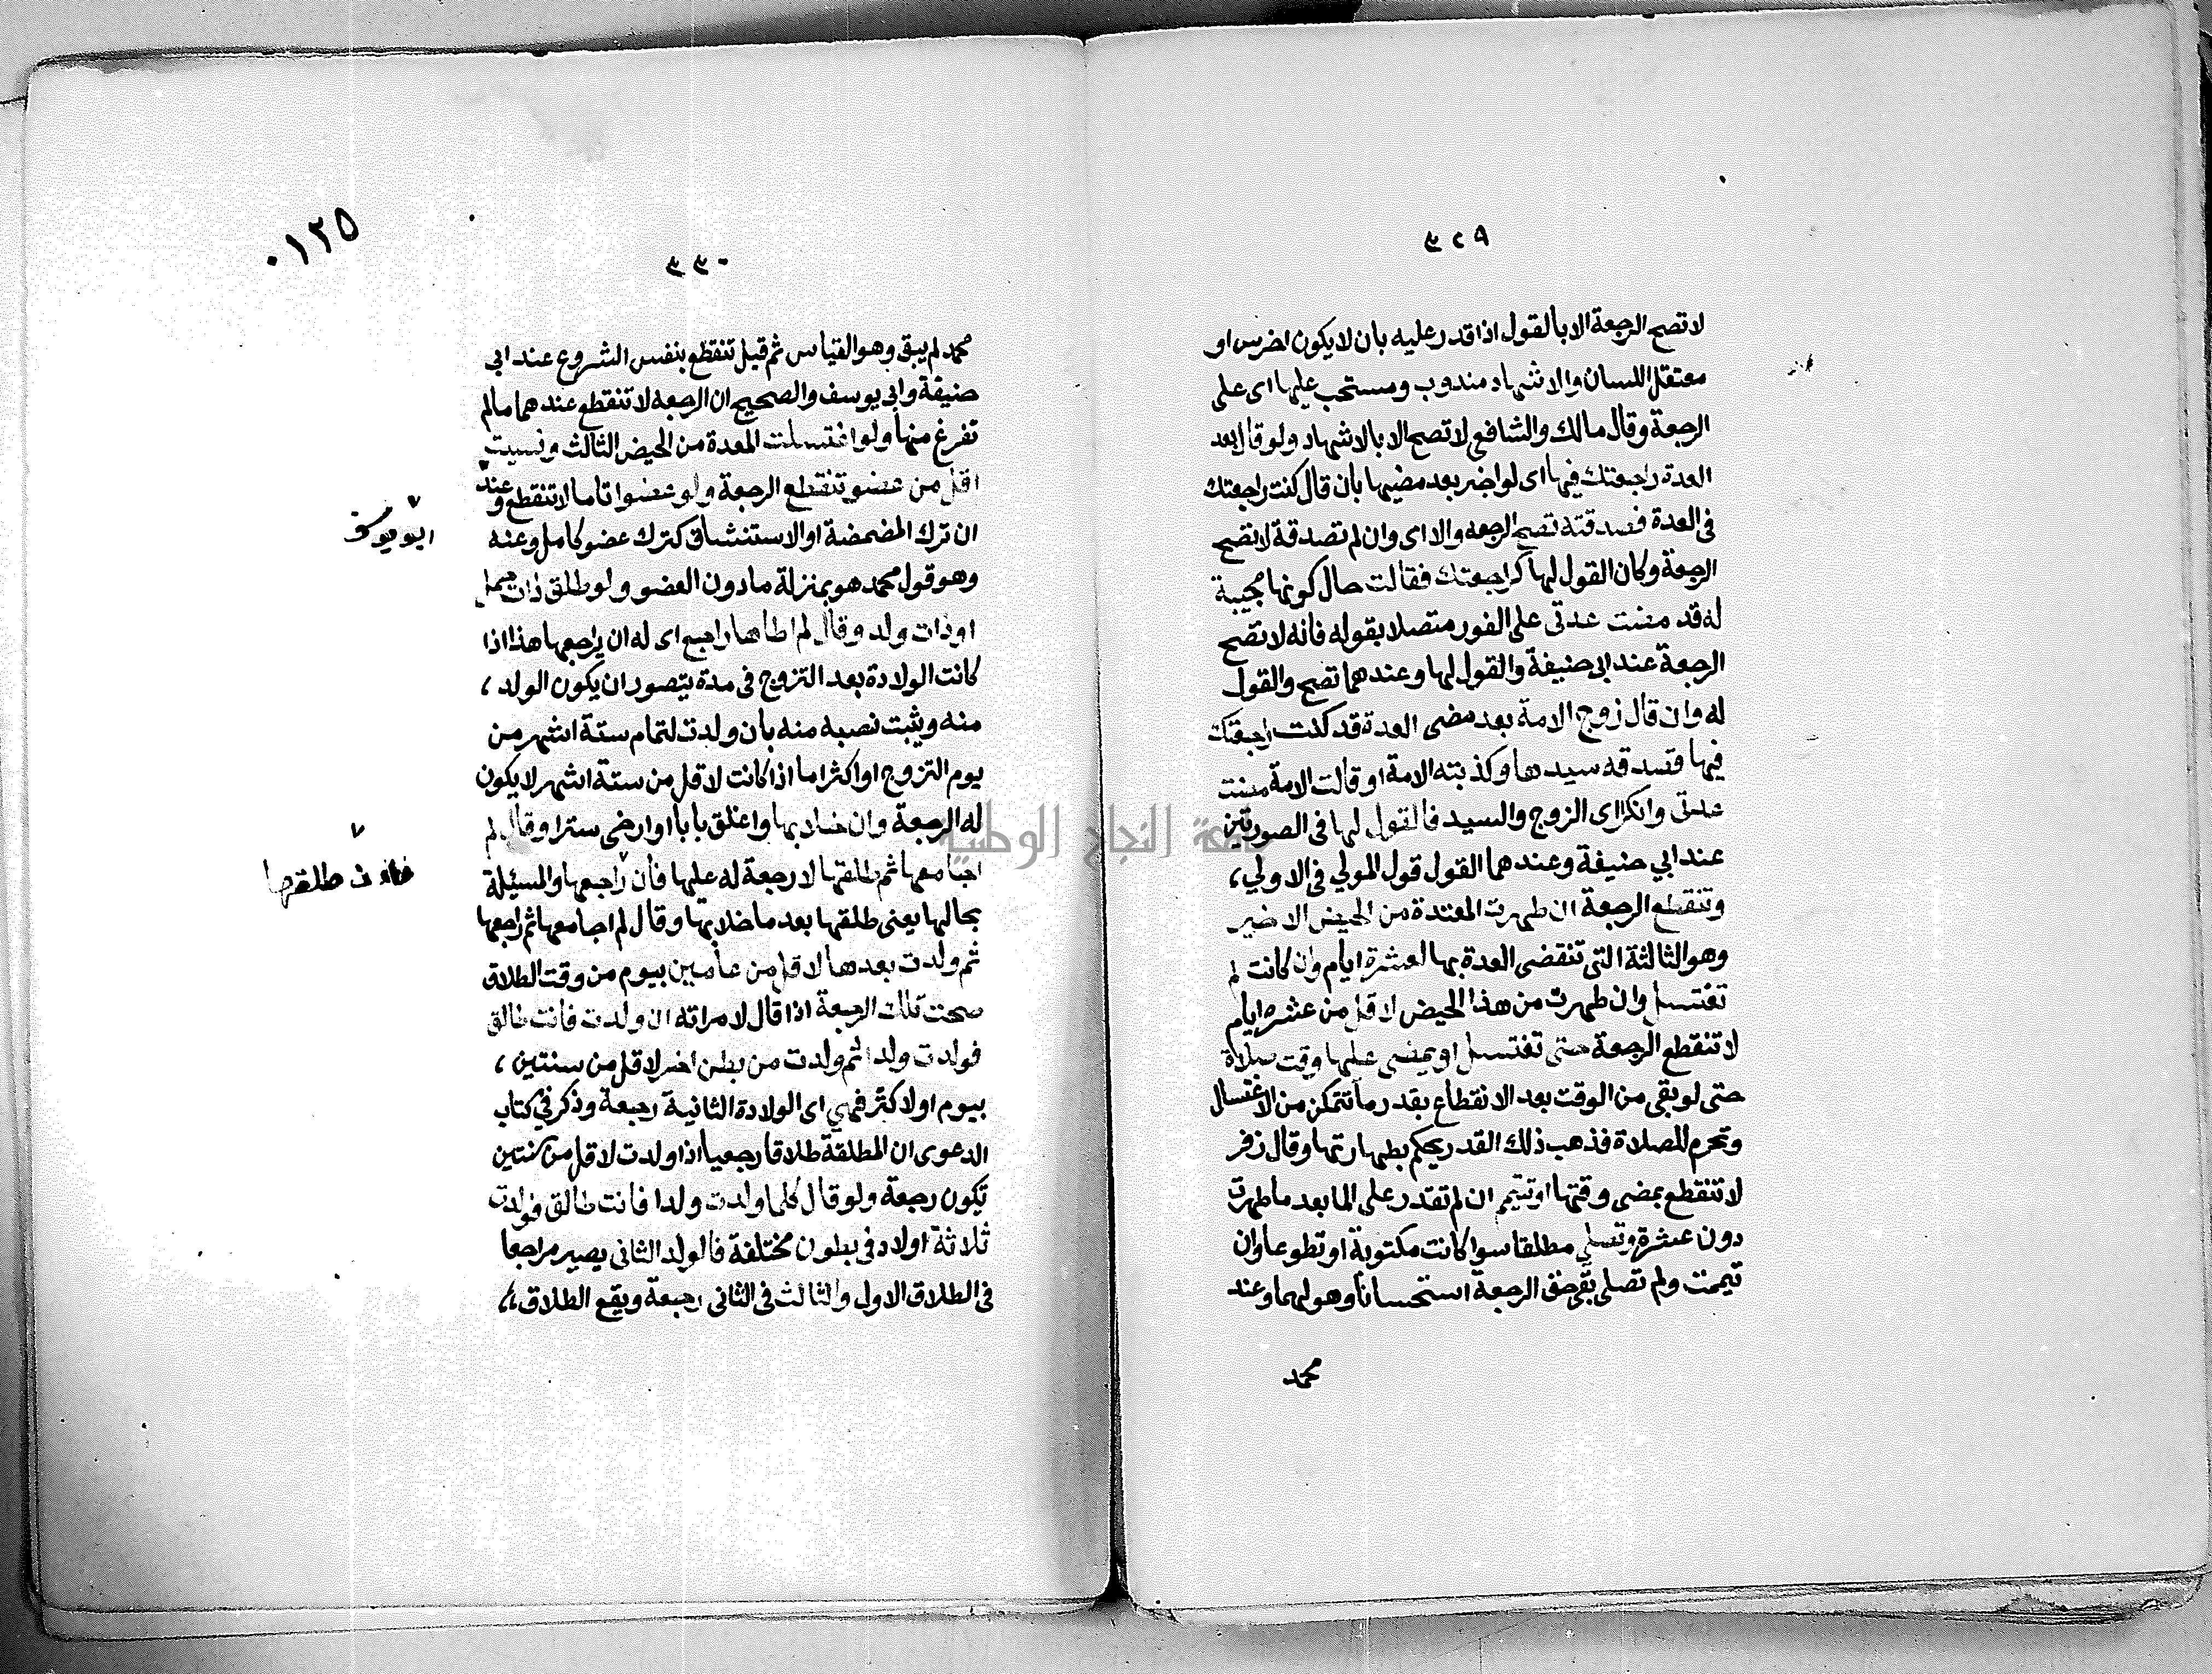 ٣٢٩
لا تصح الرجعة الا بالقول اذا قدر عليه بان لا يكون اخرس او
معتقل اللسان والاشهاد مندوب ومستحب عليها اى على
الرجعة وقال مالك والشافعي لا تصح الا بالاشهاد ولو قال بعد
العدة راجعتك فيها اى لو اخبر بعد مضيها بان قال كنت راجعتك
فى العدة فصدقته تصح الرجعه والا اى وان لم تصدقة لا تصح
الرجعة وكان القول لها كراجعتك فقالت حال كونها مجيبة
له قد مضت عدتى على الفور متصلا بقوله فانه لا تصح
الرجعة عند ابى حنيفة والقول لها وعندهما تصح والقول
له وان قال زوج الامة بعد مضى العدة قد كنت راجعتك
فيها فصدقه سيدها وكذبته الامة او قالت الامة مضت
عدتى وانكر اى الزوج والسيد فالقول لها فى الصورتين
عند ابي حنيفة وعندهما القول قول المولي فى الاولي،
وتنقطع الرجعة ان طهرت المعتدة من الحيض الاخير
وهو الثالثة التى تنقضى العدة بها لعشرة ايام وان كانت لم
تغتسل وان طهرت من هذا الحيض لاقل من عشرة ايام
لا تنقطع الرجعة حتى تغتسل او يمضى عليها وقت صلاة
حتى لو بقى من الوقت بعد الانقطاع بقدر ما تتمكن من الاغتسال
وتحرم للصلاة فذهب ذلك القدر يحكم بطهارتها وقال زفر
لا تنقطع بمضى وقتها او تتيمم ان لم تقدر على الما بعد ما طهرت
دون عشرة وتصلي مطلقا سوا كانت مكتوبة او تطوعا وان
تيمت ولم تصلى بقى حق الرجعة استحسانا وهو لهما وعند
محمد
٠١٢٥
٣٣٠
محمد لم يبق وهو القياس ثم قيل تنقطع بنفس الشروع عند ابى
حنيفة وابى يوسف والصحيح ان الرجعه لا تنقطع عندهما مالم
تفرغ منها ولو اغتسلت المعدة من الحيض الثالث ونسيت
اقل من عضو تنقطع الرجعة ولو عضوا تاما لا تنقطع وعند
ابو يوسف
ان ترك المضمضة او الاستنشاق كترك عضو كامل وعنه
وهو قول محمد هو بمنزلة مادون العضو ولو طلق ذات حمل
او ذات ولد وقال لم اطاها راجع اى له ان يراجعها هذا اذا
كانت الولادة بعد التزوج فى مدة يتصور ان يكون الولد،
منه ويثبت نصبه منه بان ولدت لتمام ستة اشهر من
يوم التزوج او اكثر اما اذا كانت لاقل من ستة اشهر لا يكون
له الرجعة وان خلا بها واغلق بابا او ارخى سترا وقال لم
اجامعها ثم طلقها لا رجعة له عليها فان راجعها والمسئلة
طلقها
بحالها يعنى طلقها بعد ما خلا بها وقال لم اجامعها ثم راجعها
ثم ولدت بعدها لاقل من عامين بيوم من وقت الطلاق
صحت تلك الرجعة اذا قال لامراته ان ولدت فانت طالق
فولدت ولدا ثم ولدت من بطن اخر لاقل من سنتين،
بيوم او لاكثر فهى اى الولادة الثانية رجعة وذكر في كتاب
الدعوى ان المطلقة طلاقا رجعيا اذا ولدت لاقل من سنتين
تكون رجعة ولو قال كلما ولدت ولدا فانت طالق فولدت
ثلاثة اولاد فى بطون مختلفة فالولد الثانى يصير مراجعا
فى الطلاق الاول والثالث فى الثانى رجعة ويقع الطلاق،
جامعة النجاح الوطنية